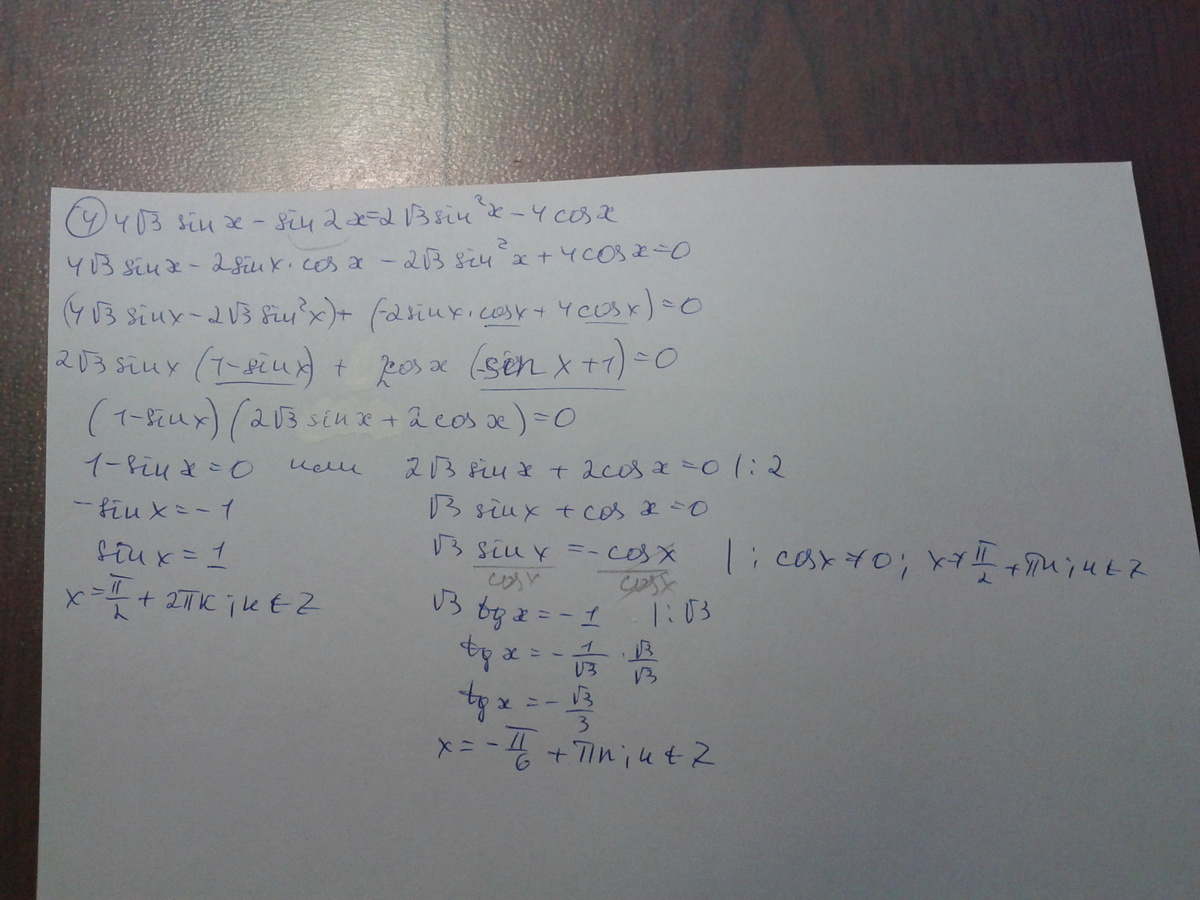 ④ 4√3 sin x - sin 2x = 2√3 sin²x - 4 cos x
4√3 sin x - 2 sin x · cos x - 2√3 sin²x + 4 cos x = 0
(4√3 sin x - 2√3 sin²x) + (-2 sin x · cos x + 4 cos x) = 0
2√3 sin x (1 - sin x) + 2 cos x (-sin x + 1) = 0
(1 - sin x) (2√3 sin x + 2 cos x) = 0
1 - sin x = 0 или 2√3 sin x + 2 cos x = 0 |: 2
- sin x = - 1 √3 sin x + cos x = 0
sin x = 1 √3 sin x / cos x = - cos x / cos x |: cos x ≠ 0; x ≠ π/2 + πn; n ∈ Z
x = π/2 + 2πk; k ∈ Z √3 tg x = - 1 |: √3
tg x = - 1/√3 · √3/√3
tg x = - √3/3
x = - π/6 + πn; n ∈ Z